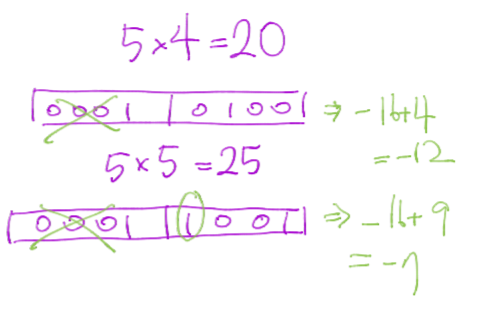 5×4=20
0001 | 0100 ⇒ -16+4
= -12
5×5=25
0001 | 1001 ⇒ -16+9
= -7